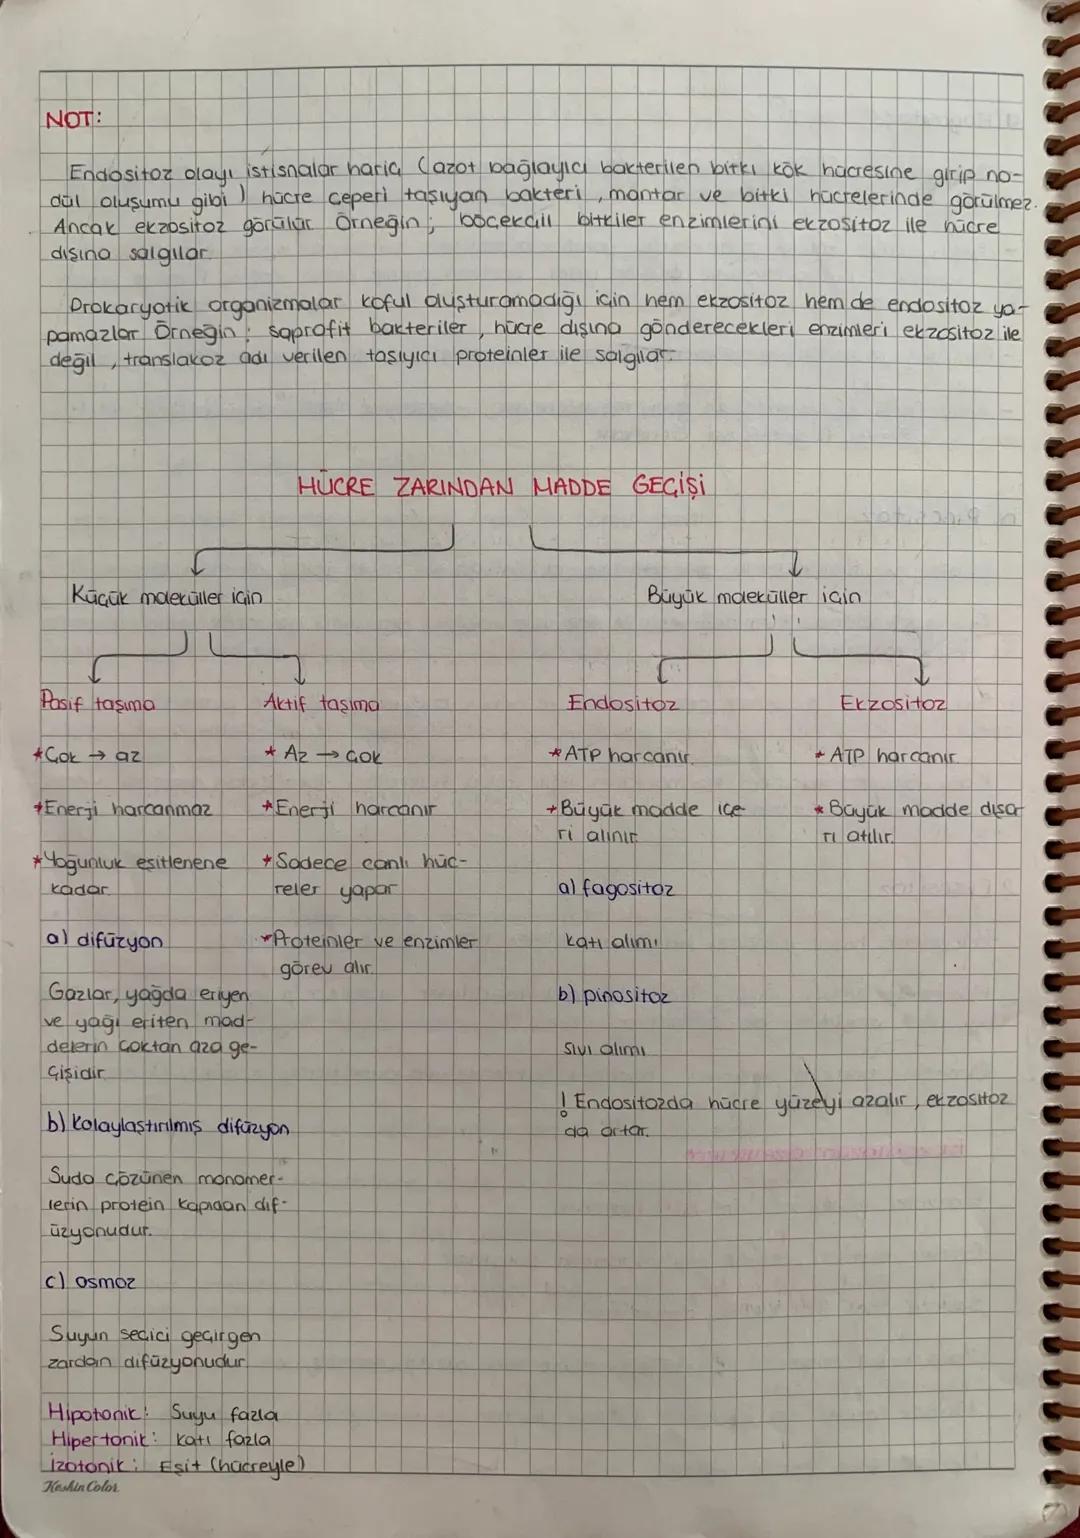 NOT:
Endositoz olayı istisnalar hariç (azot bağlayıcı bakterilen bitki kök hücresine girip no-
dül oluşumu gibi) hücre çeperi taşıyan bakteri, mantar ve bitki hücrelerinde görülmez.
Ancak ekzositoz görülür Örneğin; böcekçil bitkiler enzimlerini ekzositoz ile hücre
dışına salgılar.
Prokaryotik organizmalar koful oluşturamadığı için hem ekzositoz hem de endositoz ya-
pamazlar Örneğin; saprofit bakteriler, hücre dışına gönderecekleri enzimleri ekzositoz ile
değil, translakoz adı verilen taşıyıcı proteinler ile salgılar.
HÜCRE ZARINDAN MADDE GEÇİŞİ
Küçük moleküller için
Büyük moleküller için
Pasif taşıma
Aktif taşıma
Endositoz
Ekzositoz
*Çok → az
*Enerji harcanmaz
*Yoğunluk eşitlenene
kadar
a) difüzyon
Gazlar, yağda eriyen
ve yağı eriten mad-
delerin çoktan aza ge-
çişidir
b) Kolaylaştırılmış difüzyon
Suda çözünen monomer-
lerin protein kapıdan dif-
üzyonudur.
c) osmoz
Suyun seçici geçirgen
zardan difüzyonudur
Hipotonik: Suyu fazla
Hipertonik: Katı fazla
İzotonik: Eşit (hücreyle)
* Az → çok
*Enerji harcanır
*Sadece canlı hüc-
reler yapar
*Proteinler ve enzimler
görev alır.
*ATP harcanır.
*Büyük madde içe
ri alınır.
a) fagositoz
katı alımı
b) pinositoz
sıvı alımı
! Endositozda hücre yüzeyi azalır, ekzositoz
da artar.
* ATP harcanır
* Büyük madde dışa
rı atılır.
Keskin Color